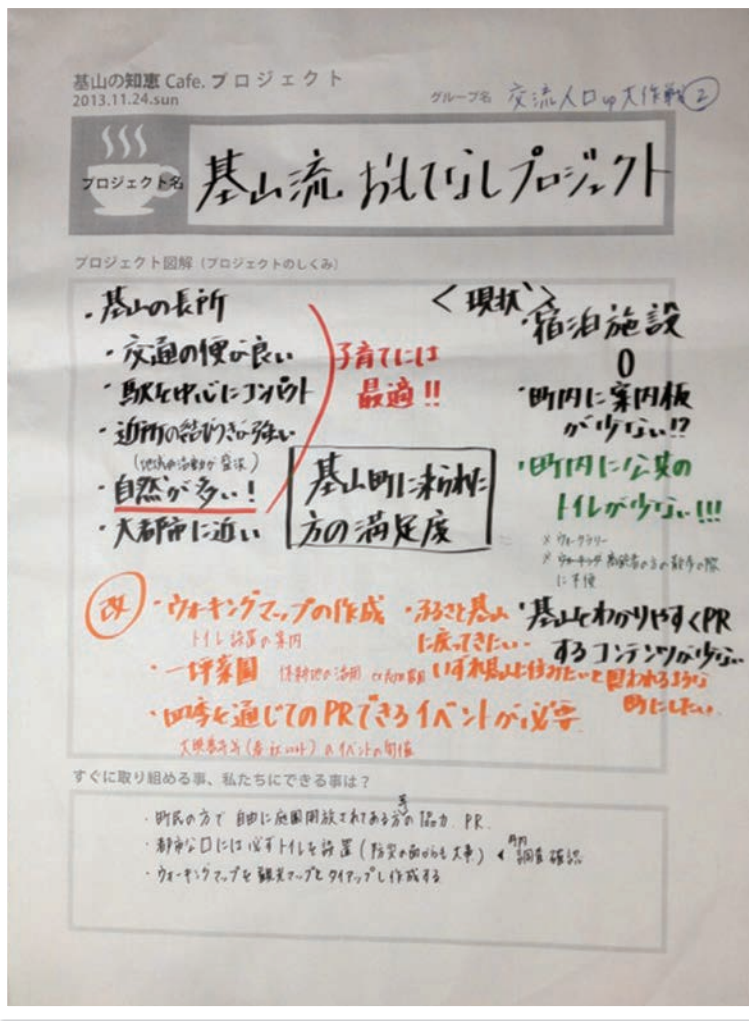 基山の知恵 Cafe. プロジェクト
2013.11.24.sun
グループ名 交流人口up大作戦②
プロジェクト名
基山流 おもてなしプロジェクト
プロジェクト図解（プロジェクトのしくみ）
・基山の長所
・交通の便が良い
・駅を中心にコンパクト
・近所の結びつきが強い
・自然が多い！
・大都市に近い
子育てには
最適!!
基山町に来られた
方の満足度
＜現状＞
・宿泊施設
0
・町内に案内板
が少ない!?
・町内に公共の
トイレが少ない!!!
※ウォークラリー
※ウォーキング 高齢者の方の散歩の際
に不便
・基山をわかりやすくPR
するコンテンツが少ない
改
・ウォーキングマップの作成
トイレ設置の案内
・一坪菜園
・四季を通じてのPRできるイベントが必要
・ふるさと基山
に戻ってきたい
いずれ基山に住みたいと思われるような
町にしたい
のイベントの開催
すぐに取り組める事、私たちにできる事は？
・町民の方で 自由に庭園開放されてある方の協力 PR
・都市公園には必ずトイレを設置(防災の面からも大事) 調査確認
・ウォーキングマップを観光マップとタイアップし作成する